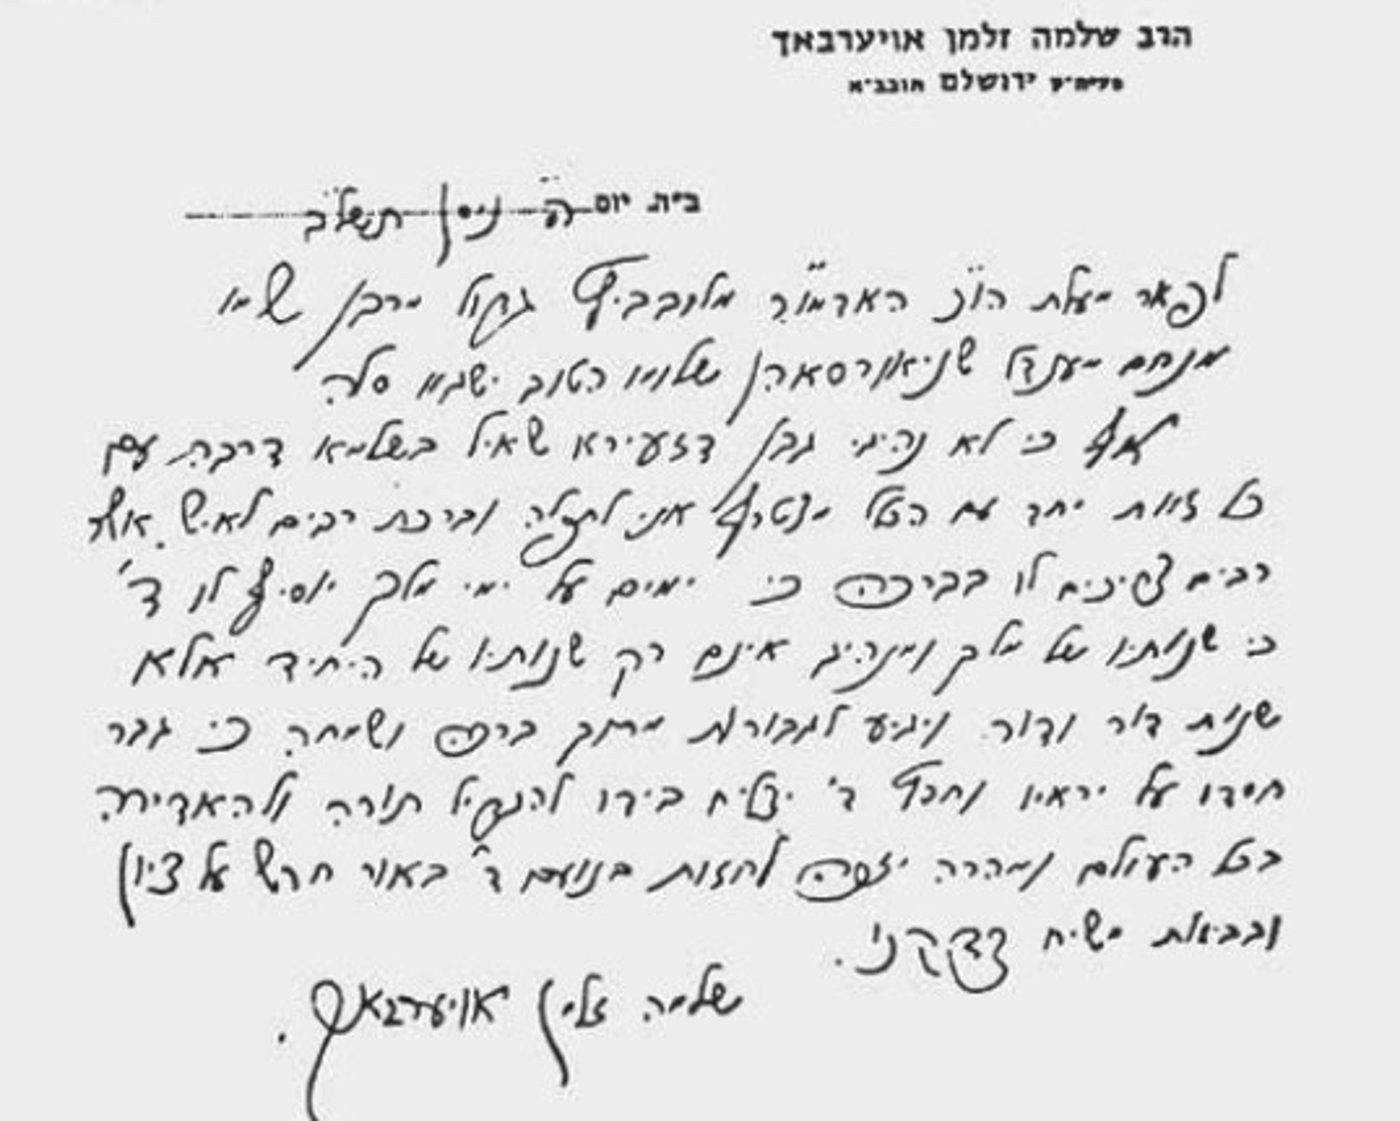 הרב שלמה זלמן אויערבאך
פעיה״ק ירושלם תובב״א
ב״ה. יום ה׳ ניסן תשל״ב
לפאר מעלת הו״כ האדמו״ר מלובביץ בקול מרבן ש״מו
מנחם מענדל שניאורסאהן שלומו הטוב ישגיו סלה
אף כי לא נהיגי גבן דזעירא שאיל בשלמא דרבה עם
כל זאת יחד עם הכלל מצטרף אני לתפלה וברכת רבים לאיש אשר
רבים צריכים לו בברכה כי ימים על ימי מלך יוסיף לו ד׳
כי שנותיו של מלך ומנהיג אינם רק שנותיו של היחיד אלא
שנות דור ודור. ויגיע לגבורות מתוך ברכה ושמחה כי גבר
חסדו על יראיו וחפץ ד׳ יצליח בידו להגדיל תורה ולהאדירה
בכל העולם ומהרה יזכה לחזות בנועם ד׳ באור חדש על ציון
ובביאת משיח צדקנו.
שלמה זלמן אויערבאך.